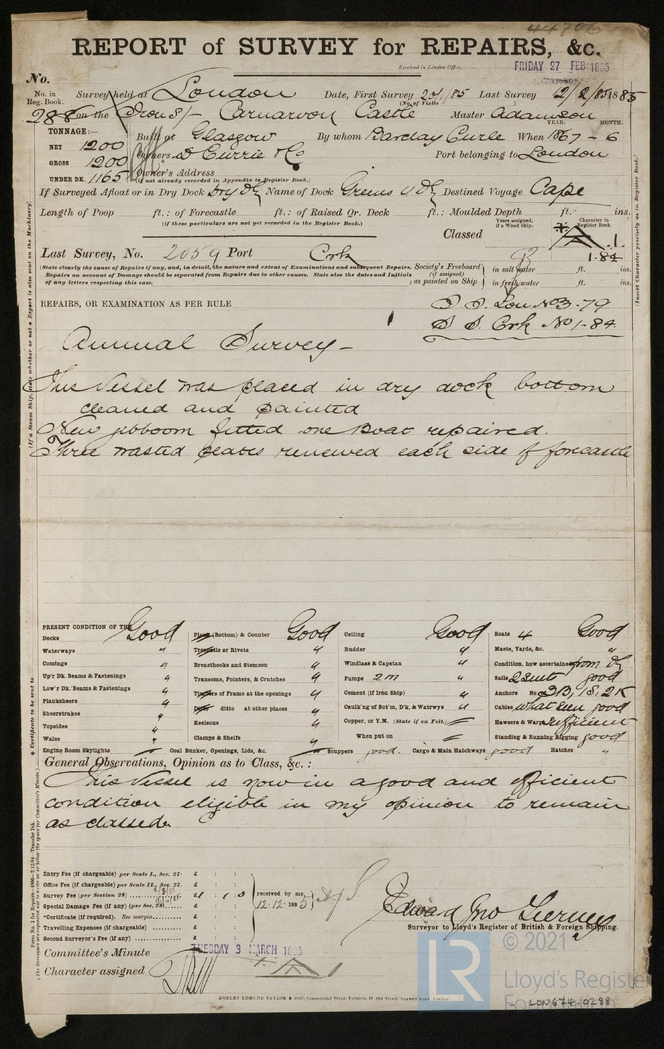 44706
REPORT of SURVEY for REPAIRS, &c.
Received in London Office, FRIDAY 27 FEB 1885
No.
No. in Reg. Book. Survey held at London Date, First Survey 20/1/85 Last Survey 2/2/85 1885
(No. of Visits)
288 on the Iron S/- Carnarvon Castle Master Adamson
TONNAGE:— YEAR. MONTH.
NET 1200 Built at Glasgow By whom Barclay Curle When 1867 - 6
GROSS 1200 Owners D Currie & Co Port belonging to London
UNDER DK. 1165 Owner's Address
(if not already recorded in Appendix to Register Book.)
If Surveyed Afloat or in Dry Dock Dry Dk Name of Dock Greens Dk Destined Voyage Cape
Length of Poop ft.: of Forecastle ft.: of Raised Qr. Deck ft.: Moulded Depth ft. ins.
(if these particulars are not yet recorded in the Register Book.)
Years assigned, if a Wood Ship. Character in Register Book.
Classed A 1.
1.84
Last Survey, No. 2059 Port Cork
(State clearly the cause of Repairs if any, and, in detail, the nature and extent of Examinations and subsequent Repairs.
Repairs on account of Damage should be separated from Repairs due to other causes. State also the dates and Initials
of any letters respecting this case.)
Society's Freeboard (if assigned) as painted on Ship in salt water ft. ins.
in fresh water ft. ins.
REPAIRS, OR EXAMINATION AS PER RULE
S.S. Lon No3.79
S.S. Cork No1-84.
Annual Survey -
This Vessel was placed in dry dock bottom
cleaned and painted
New jibboom fitted one Boat repaired.
Three wasted plates renewed each side of forecastle
PRESENT CONDITION OF THE
Decks Good Plank (Bottom) & Counter Good Ceiling Good Boats 4 Good
Waterways " Treenails or Rivets " Rudder " Masts, Yards, &c. "
Comings " Breasthooks and Stemson " Windlass & Capstan " Condition, how ascertained from Dk
Up'r Dk. Beams & Fastenings " Transoms, Pointers, & Crutches " Pumps 2 m " Sails 2 Suits good
Low'r Dk. Beams & Fastenings " Timbers of Frame at the openings " Cement (if Iron Ship) " Anchors No. 3B, 1S, 2K
Planksheers " ditto at other places " Caulk'ng of Bot'm, D'k, & Watrwys " Cables what seen good
Sheerstrakes " Keelsons " Copper, or Y.M. (State if on Felt.) Hawsers & Warps sufficient
Topsides " Clamps & Shelfs When put on Standing & Running Rigging good
Wales "
Engine Room Skylights Coal Bunker, Openings, Lids, &c. Scuppers good. Cargo & Main Hatchways good Hatches "
General Observations, Opinion as to Class, &c.:
This Vessel is now in a good and efficient
condition eligible in my opinion to remain
as classed.
Entry Fee (if chargeable) per Scale I., Sec. 27. £
Office Fee (if chargeable) per Scale II., Sec. 27. £
Survey Fee (per Section 28) £ 1 . 1 . 0
Special Damage Fee (if any) (per Sec. 28) £
*Certificate (if required). See margin. £
Travelling Expenses (if chargeable) £
Second Surveyor's Fee (if any) £
received by me,
12.12.1885
Edward Jno Tierney
Surveyor to Lloyd's Register of British & Foreign Shipping.
Committee's Minute TUESDAY 3 MARCH 1885
Character assigned A 1
ROBERT EDMUND TAYLOR & SON,
LR
© 2021
Lloyd's Register
Foundation
LON674-0288